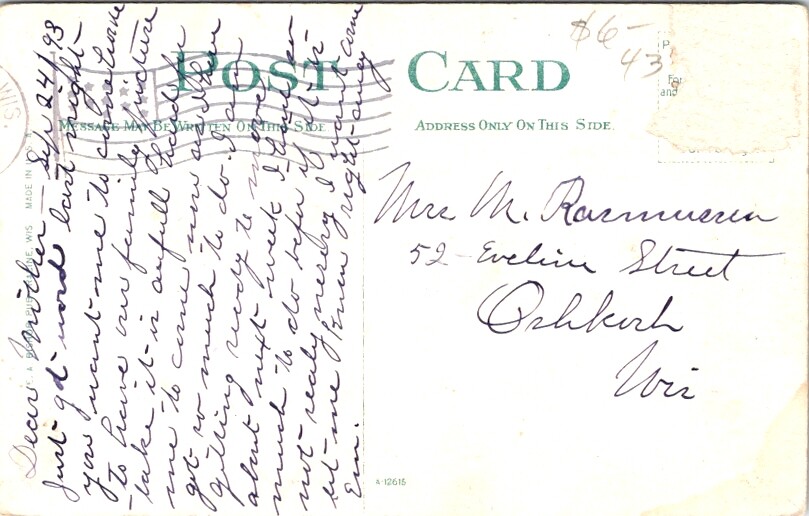 POST CARD
MESSAGE MAY BE WRITTEN ON THIS SIDE
ADDRESS ONLY ON THIS SIDE.
$6-
43
WIS.
Sep 24/93
Dear Mother
Just got word last night-
you want me to come home
to have our family picture
take it is awfull hard for
me to come now and then
got so much to do. I am
gitting ready to move
about next week I have so
much to do befor if it is
not realy nesery I want come
let me know right away
Em.
Mrs M. Rasmussen
52 Eveline Street
Oshkosh
Wis
A-12615
MADE IN U.S.